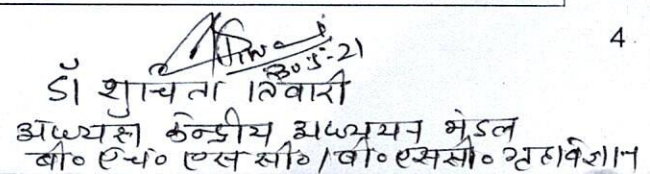 30.5.21
4
डॉ शुचिता तिवारी
अध्यक्ष केन्द्रीय अध्ययन मंडल
बी० एच० एस सी० / बी० एससी० गृहविज्ञान